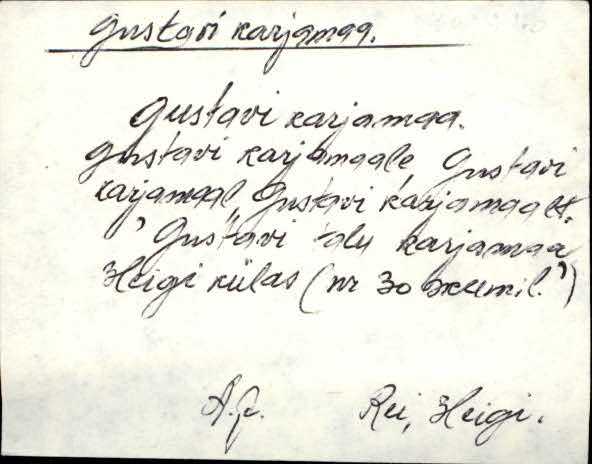 Gustavi karjamaa.
Gustavi karjamaa.
Gustavi karjamaale, Gustavi
karjamaal, Gustavi karjamaalt.
'Gustavi talu karjamaa
Heigi külas (nr 30 skeemil.')
Rei, Heigi.